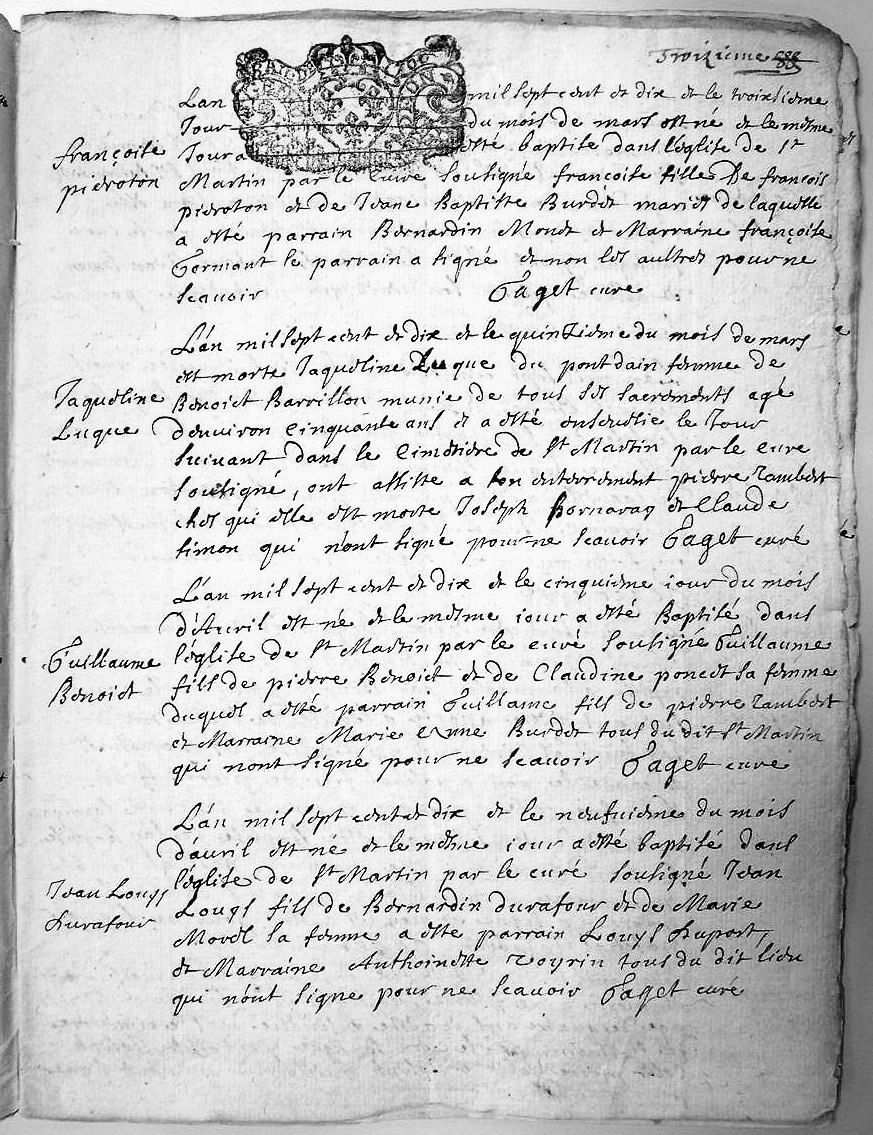 Troizieme
Lan mil sept cent et dix et le troixiieme
Jour du mois de mars est ne et le mesme
françoise
pieroton
Jour a esté baptise dans leglise de St
Martin par le cure soutigné françoise fille De françois
pieroton et de Jeane Baptiste Burdet mariés de laquelle
a esté parrain Bernardin Monet et Marraine françoise
Gormant le parrain a signé et non les aultres pour ne
scavoir Paget cure
L'an mil sept cent et dix et le quinzieme du mois de mars
est morte Jaqueline Luque du pontdain femme de
Jaqueline
Luque
Benoict Barrillon munie de tous ses sacrements agé
denviron cinquante ans et a esté ensevelie le Jour
suivant dans le Cimetiere de St Martin par le cure
soutigné, ont assiste a son enterrement pierre rambert
ches qui elle est morte Joseph Bornarag et Claude
simon qui n'ont signé pour ne scavoir Paget curé
L'an mil sept cent et dix et le cinquieme iour du mois
d'Auril est né et le mesme iour a esté Baptisé dans
Guillaume
Benoict
l'église de St Martin par le curé soutigné Guillaume
fils de pierre Benoict et de Claudine poncet sa femme
duquel a esté parrain Guillame fils de pierre rambert
et Marraine Marie Anne Burdet tous du dit St Martin
qui nont signé pour ne scavoir Paget cure
L'an mil sept cent et dix et le neufuieme du mois
d'auril est né et le mesme iour a esté baptisé dans
Jean Louys
Durafour
l'église de St Martin par le curé soutigné Jean
Louys fils de Bernardin durafour et de Marie
Morel sa femme a esté parrain Louys Duport,
et Marraine Anthoinette Voyrin tous du dit lieu
qui n'ont signe pour ne scavoir Paget curé